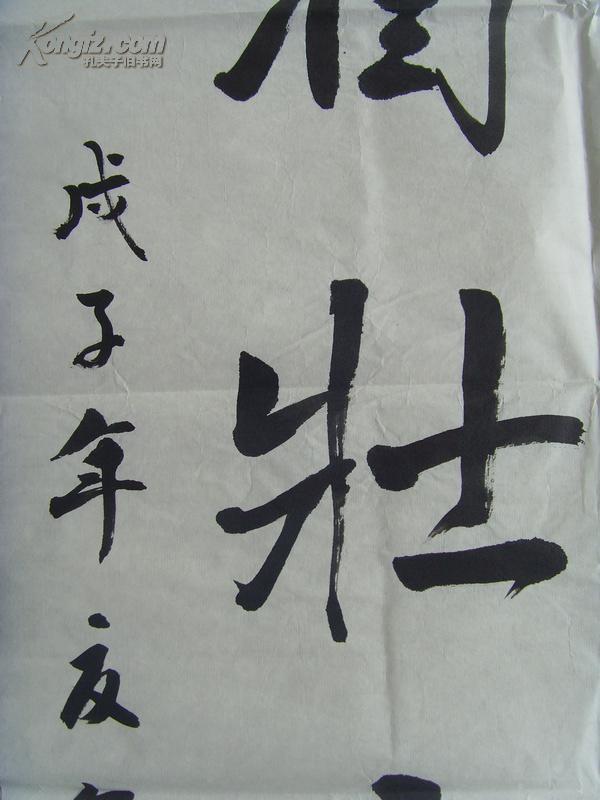 Kongfz.com
孔夫子旧书网
壯
戊子年夏